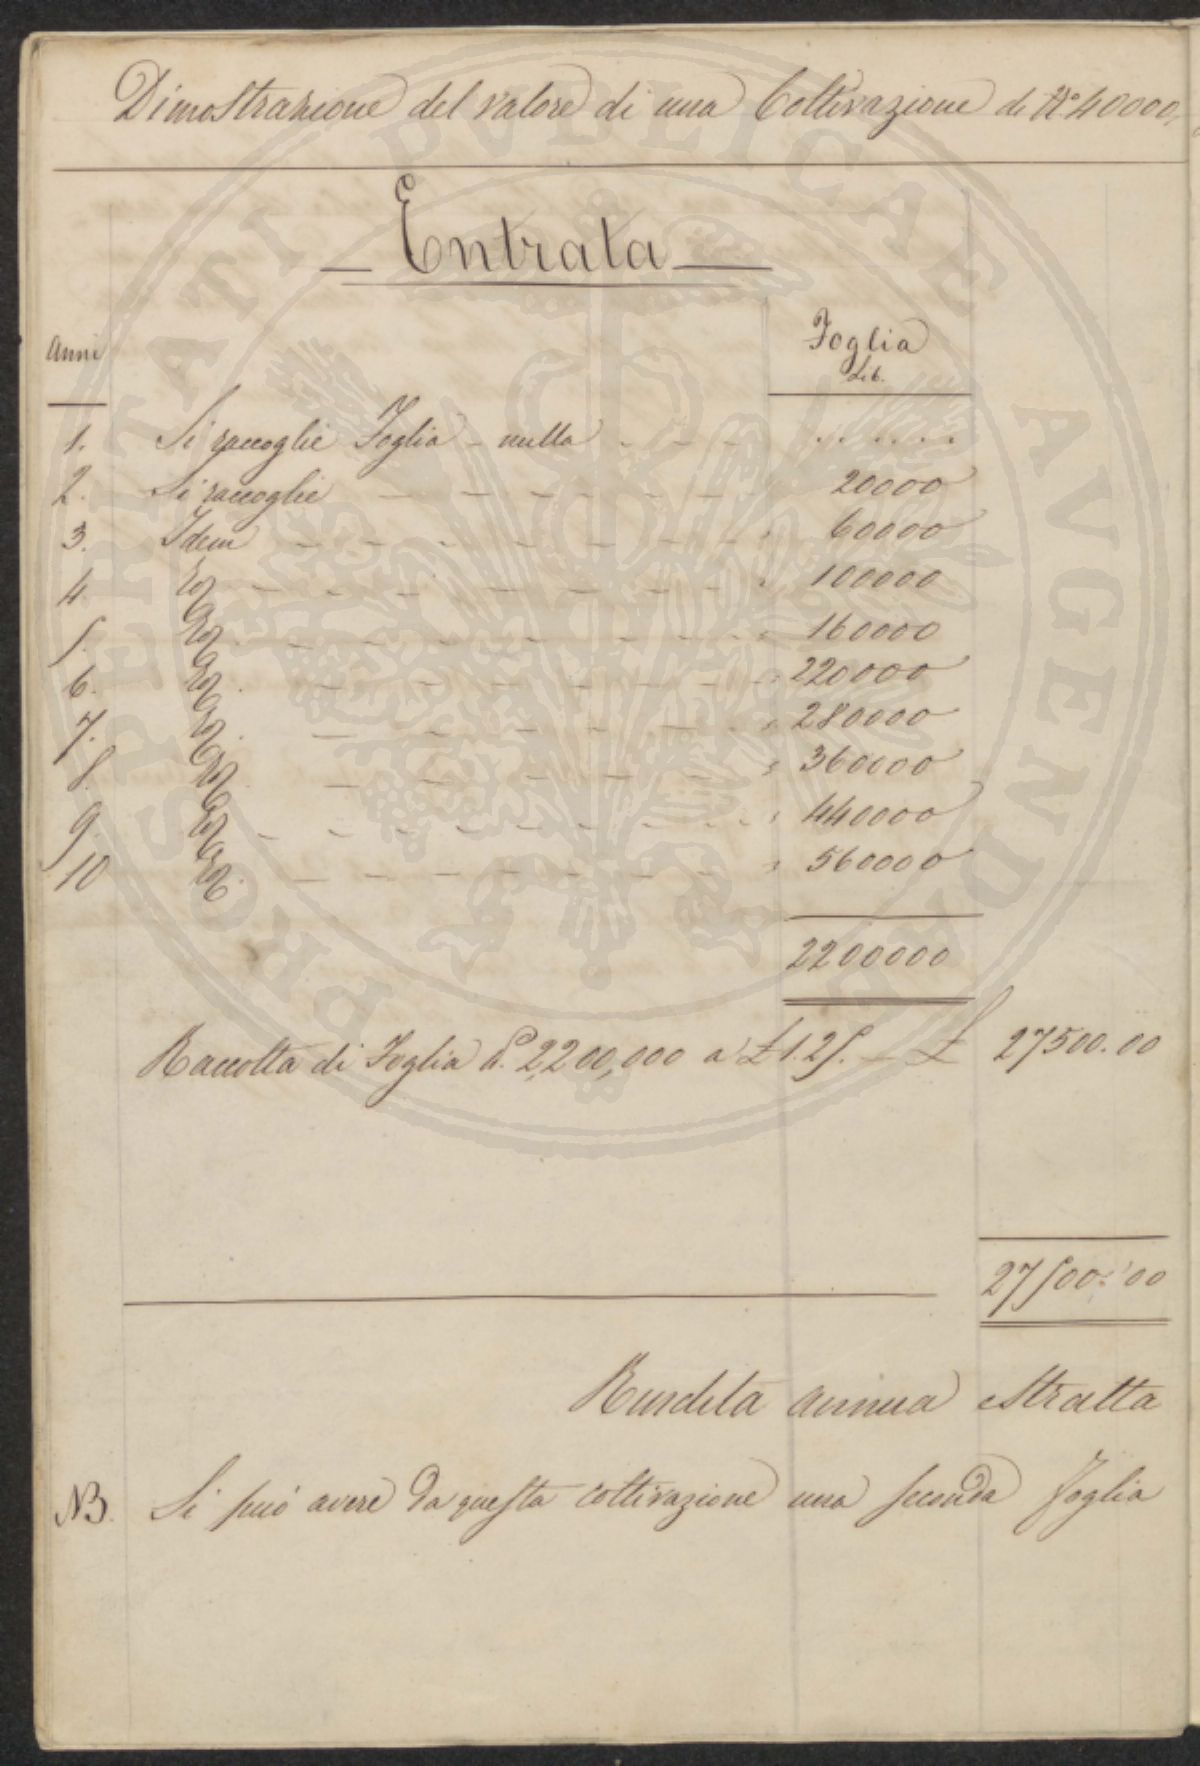 Dimostrazione del valore di una Coltivazione di No 40000,
Entrata
Anni
Foglia
Lib.
1. Si raccoglie Foglia - nulla - - - . . . . .
2. Si raccoglie - - - - - - 20000
3. Idem - - - - - - - 60000
4. Id - - - - - - - 100000
5. Id - - - - - - - 160000
6. Id. - - - - - - 220000
7. Id. - - - - - - 280000
8. Id. - - - - - - 360000
9. Id. - - - - - - - 440000
10 Id. - - - - - - - 560000
2200000
Raccolta di Foglia L. 2,200,000 a £ 1.25. - £ 27500.00
27500.00
Rendita annua estratta
NB. Si può avere da questa coltivazione una seconda foglia
PROSPERITATI PVBLICAE AVGENDAE